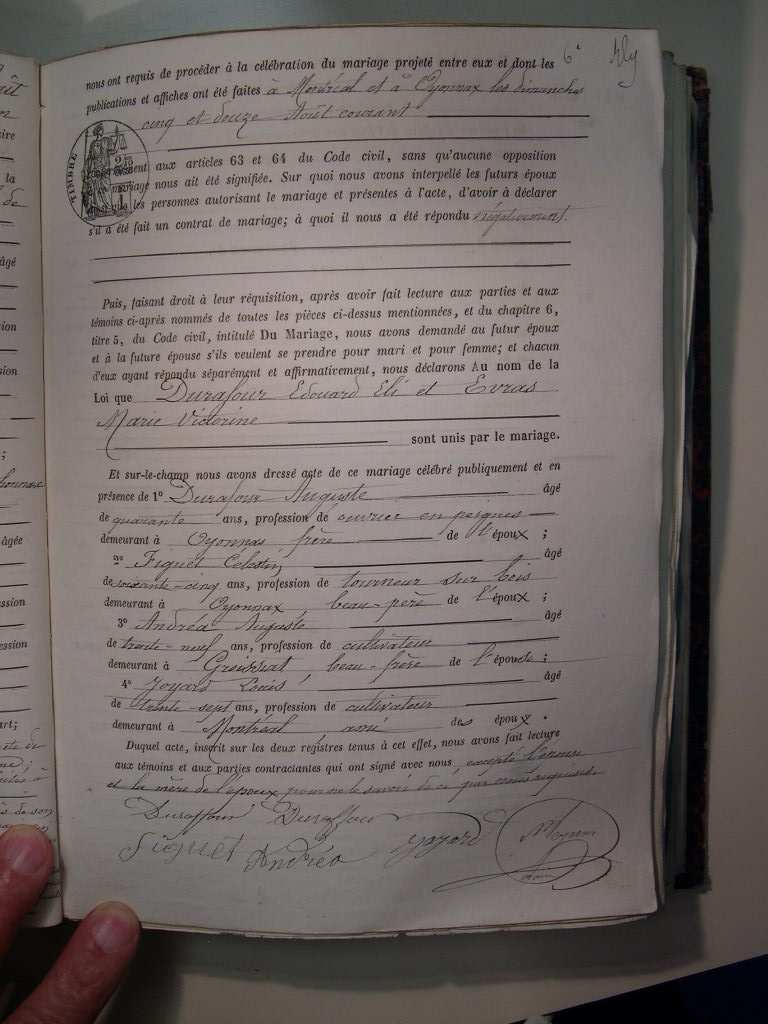 6e
nous ont requis de procéder à la célébration du mariage projeté entre eux et dont les
publications et affiches ont été faites à Montréal et à Oyonnax les dimanches
cinq et douze Août courant
TIMBRE
aux articles 63 et 64 du Code civil, sans qu'aucune opposition
mariage nous ait été signifiée. Sur quoi nous avons interpellé les futurs époux
les personnes autorisant le mariage et présentes à l'acte, d'avoir à déclarer
s'il a été fait un contrat de mariage; à quoi il nous a été répondu négativement.
Puis, faisant droit à leur réquisition, après avoir fait lecture aux parties et aux
témoins ci-après nommés de toutes les pièces ci-dessus mentionnées, et du chapitre 6,
titre 5, du Code civil, intitulé Du Mariage, nous avons demandé au futur époux
et à la future épouse s'ils veulent se prendre pour mari et pour femme; et chacun
d'eux ayant répondu séparément et affirmativement, nous déclarons Au nom de la
Loi que Durafour Edouard Eli et Evras
Marie Victorine
sont unis par le mariage.
Et sur-le-champ nous avons dressé acte de ce mariage célébré publiquement et en
présence de 1° Durafour Auguste âgé
de quarante ans, profession de ouvrier en peignes
demeurant à Oyonnax frère de l'époux ;
2° Figuet Célestin âgé
de soixante-cinq ans, profession de tourneur sur bois
demeurant à Oyonnax beau-père de l'époux ;
3° Andréa Auguste âgé
de trente-neuf ans, profession de cultivateur
demeurant à Groissiat beau-frère de l'épouse ;
4° Joyard Louis âgé
de trente-sept ans, profession de cultivateur
demeurant à Montréal ami des époux.
Duquel acte, inscrit sur les deux registres tenus à cet effet, nous avons fait lecture
aux témoins et aux parties contractantes qui ont signé avec nous excepté l'épouse
et la mère de l'époux pour ne le savoir de ce par nous requises
Duraffour Duraffour
Figuet Andréa Joyard